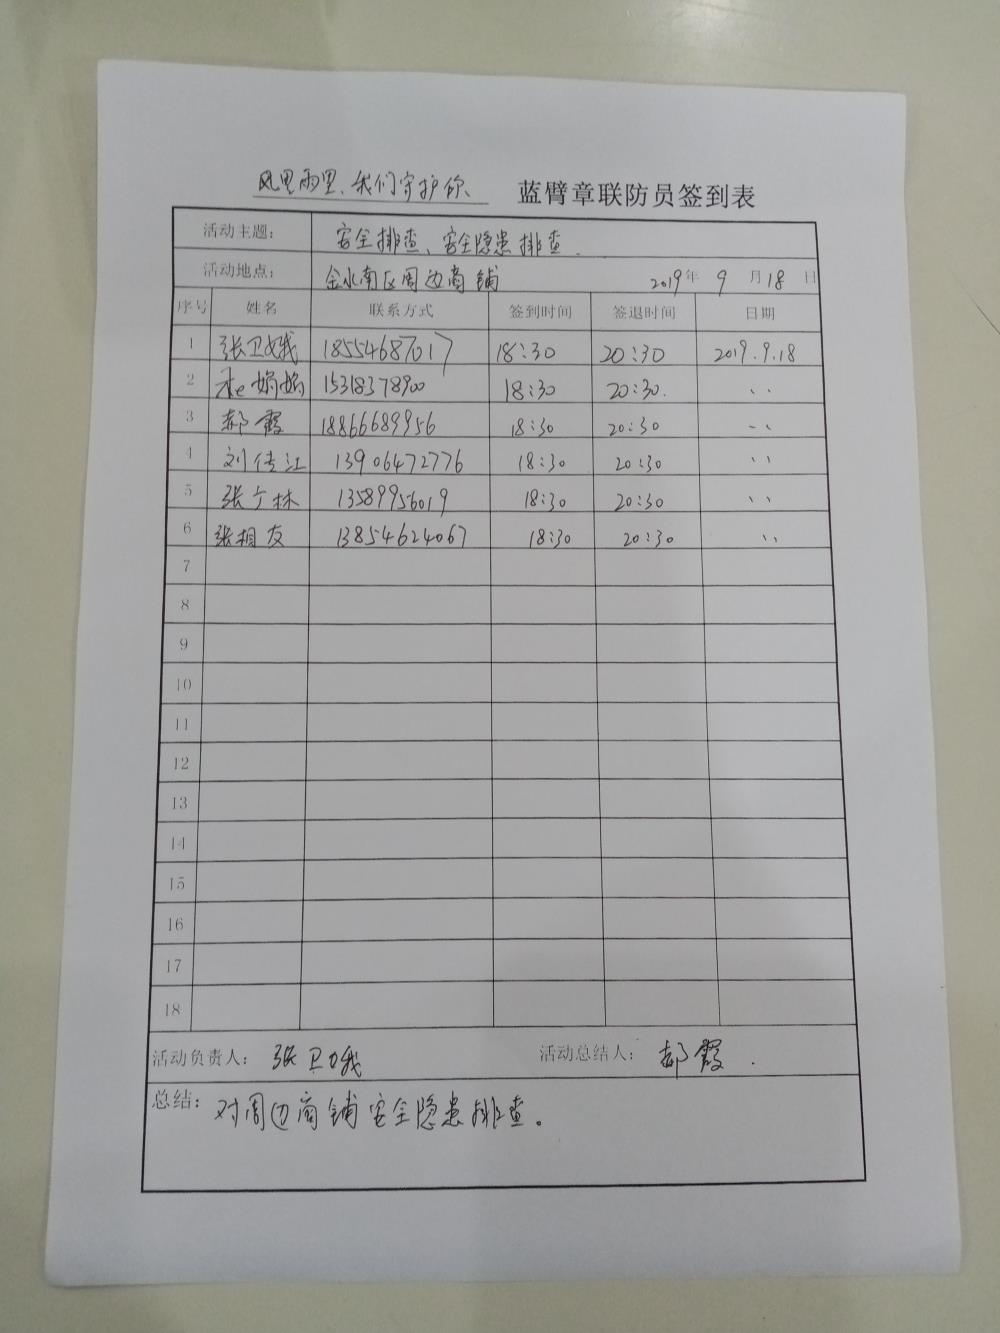 风里雨里、我们守护你、 蓝臂章联防员签到表
活动主题： 安全排查、安全隐患排查.
活动地点： 金水南区周边商铺 2019年 9 月 18 日
序号 姓名 联系方式 签到时间 签退时间 日期
1 张卫娥 18554687017 18:30 20:30 2019.9.18
2 娟娟 15318378900 18:30 20:30. 、、
3 郝霞 18866689956 18:30 20:30 、、
4 刘传江 13906472776 18:30 20:30 、、
5 张广林 13589956019 18:30 20:30 、、
6 张相友 13854624067 18:30 20:30 、、
7
8
9
10
11
12
13
14
15
16
17
18
活动负责人： 张卫娥 活动总结人： 郝霞.
总结： 对周边商铺安全隐患排查。